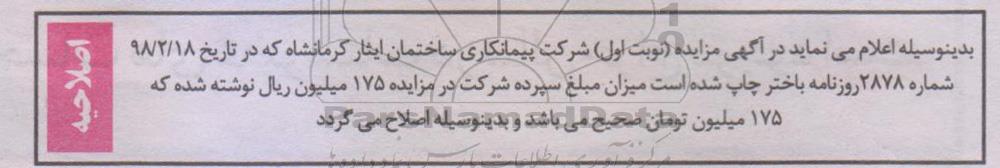 اصلاحیه
بدینوسیله اعلام می نماید در آگهی مزایده (نوبت اول) شرکت پیمانکاری ساختمان ایثار کرمانشاه که در تاریخ ۹۸/۲/۱۸
شماره ۲۸۷۸ روزنامه باختر چاپ شده است میزان مبلغ سپرده شرکت در مزایده ۱۷۵ میلیون ریال نوشته شده که
۱۷۵ میلیون تومان صحیح می باشد و بدینوسیله اصلاح می گردد